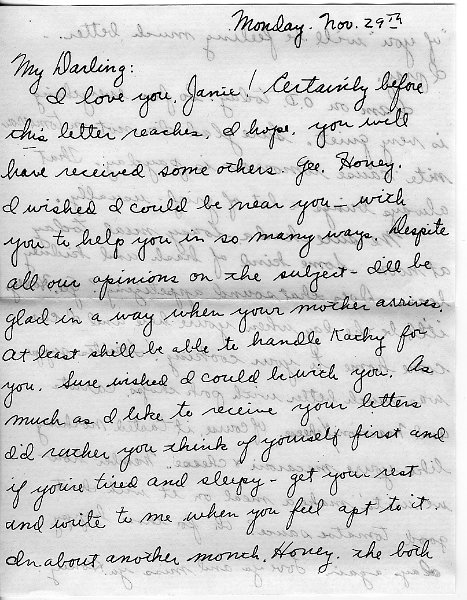 Monday. Nov. 29th
My Darling:
I love you, Janie! Certainly before
this letter reaches, I hope, you will
have received some others. Gee, Honey,
I wished I could be near you - with
you to help you in so many ways. Despite
all our opinions on the subject - I'll be
glad in a way when your mother arrives.
At least she'll be able to handle Kathy for
you. Sure wished I could be with you. As
much as I like to receive your letters
I'd rather you think of yourself first and
if you're tired and sleepy - get your rest
and write to me when you feel apt to it.
In about another month, Honey, the both